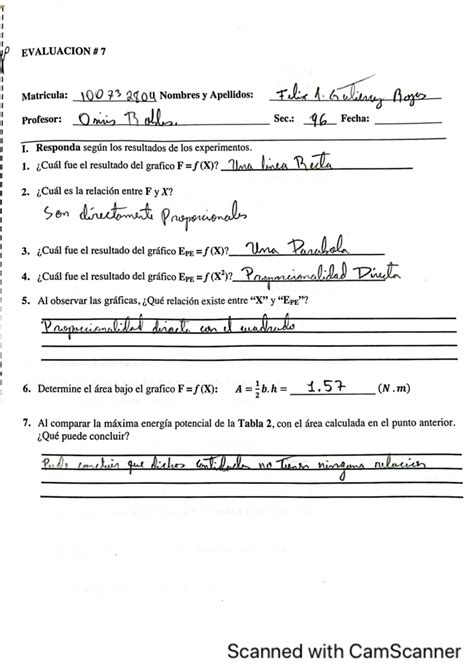 EVALUACION # 7
Matricula: 100732904 Nombres y Apellidos: Felix A. Gutierrez Reyes
Profesor: Onis Robles. Sec.: 96 Fecha:
I. Responda según los resultados de los experimentos.
1. ¿Cuál fue el resultado del grafico F = f (X)? Una linea Recta
2. ¿Cuál es la relación entre F y X?
Son directamente Proporcionales
3. ¿Cuál fue el resultado del gráfico EPE = f (X)? Una Parabola
4. ¿Cuál fue el resultado del gráfico EPE = f (X²)? Proporcionalidad Directa
5. Al observar las gráficas, ¿Qué relación existe entre “X” y “EPE”?
Proporcionalidad directa con el cuadrado
6. Determine el área bajo el grafico F = f (X): A = 1/2 b. h = 1.57 (N . m)
7. Al comparar la máxima energía potencial de la Tabla 2, con el área calculada en el punto anterior.
¿Qué puede concluir?
concluir que dichas cantidades no Tienen ninguna relacion
Scanned with CamScanner